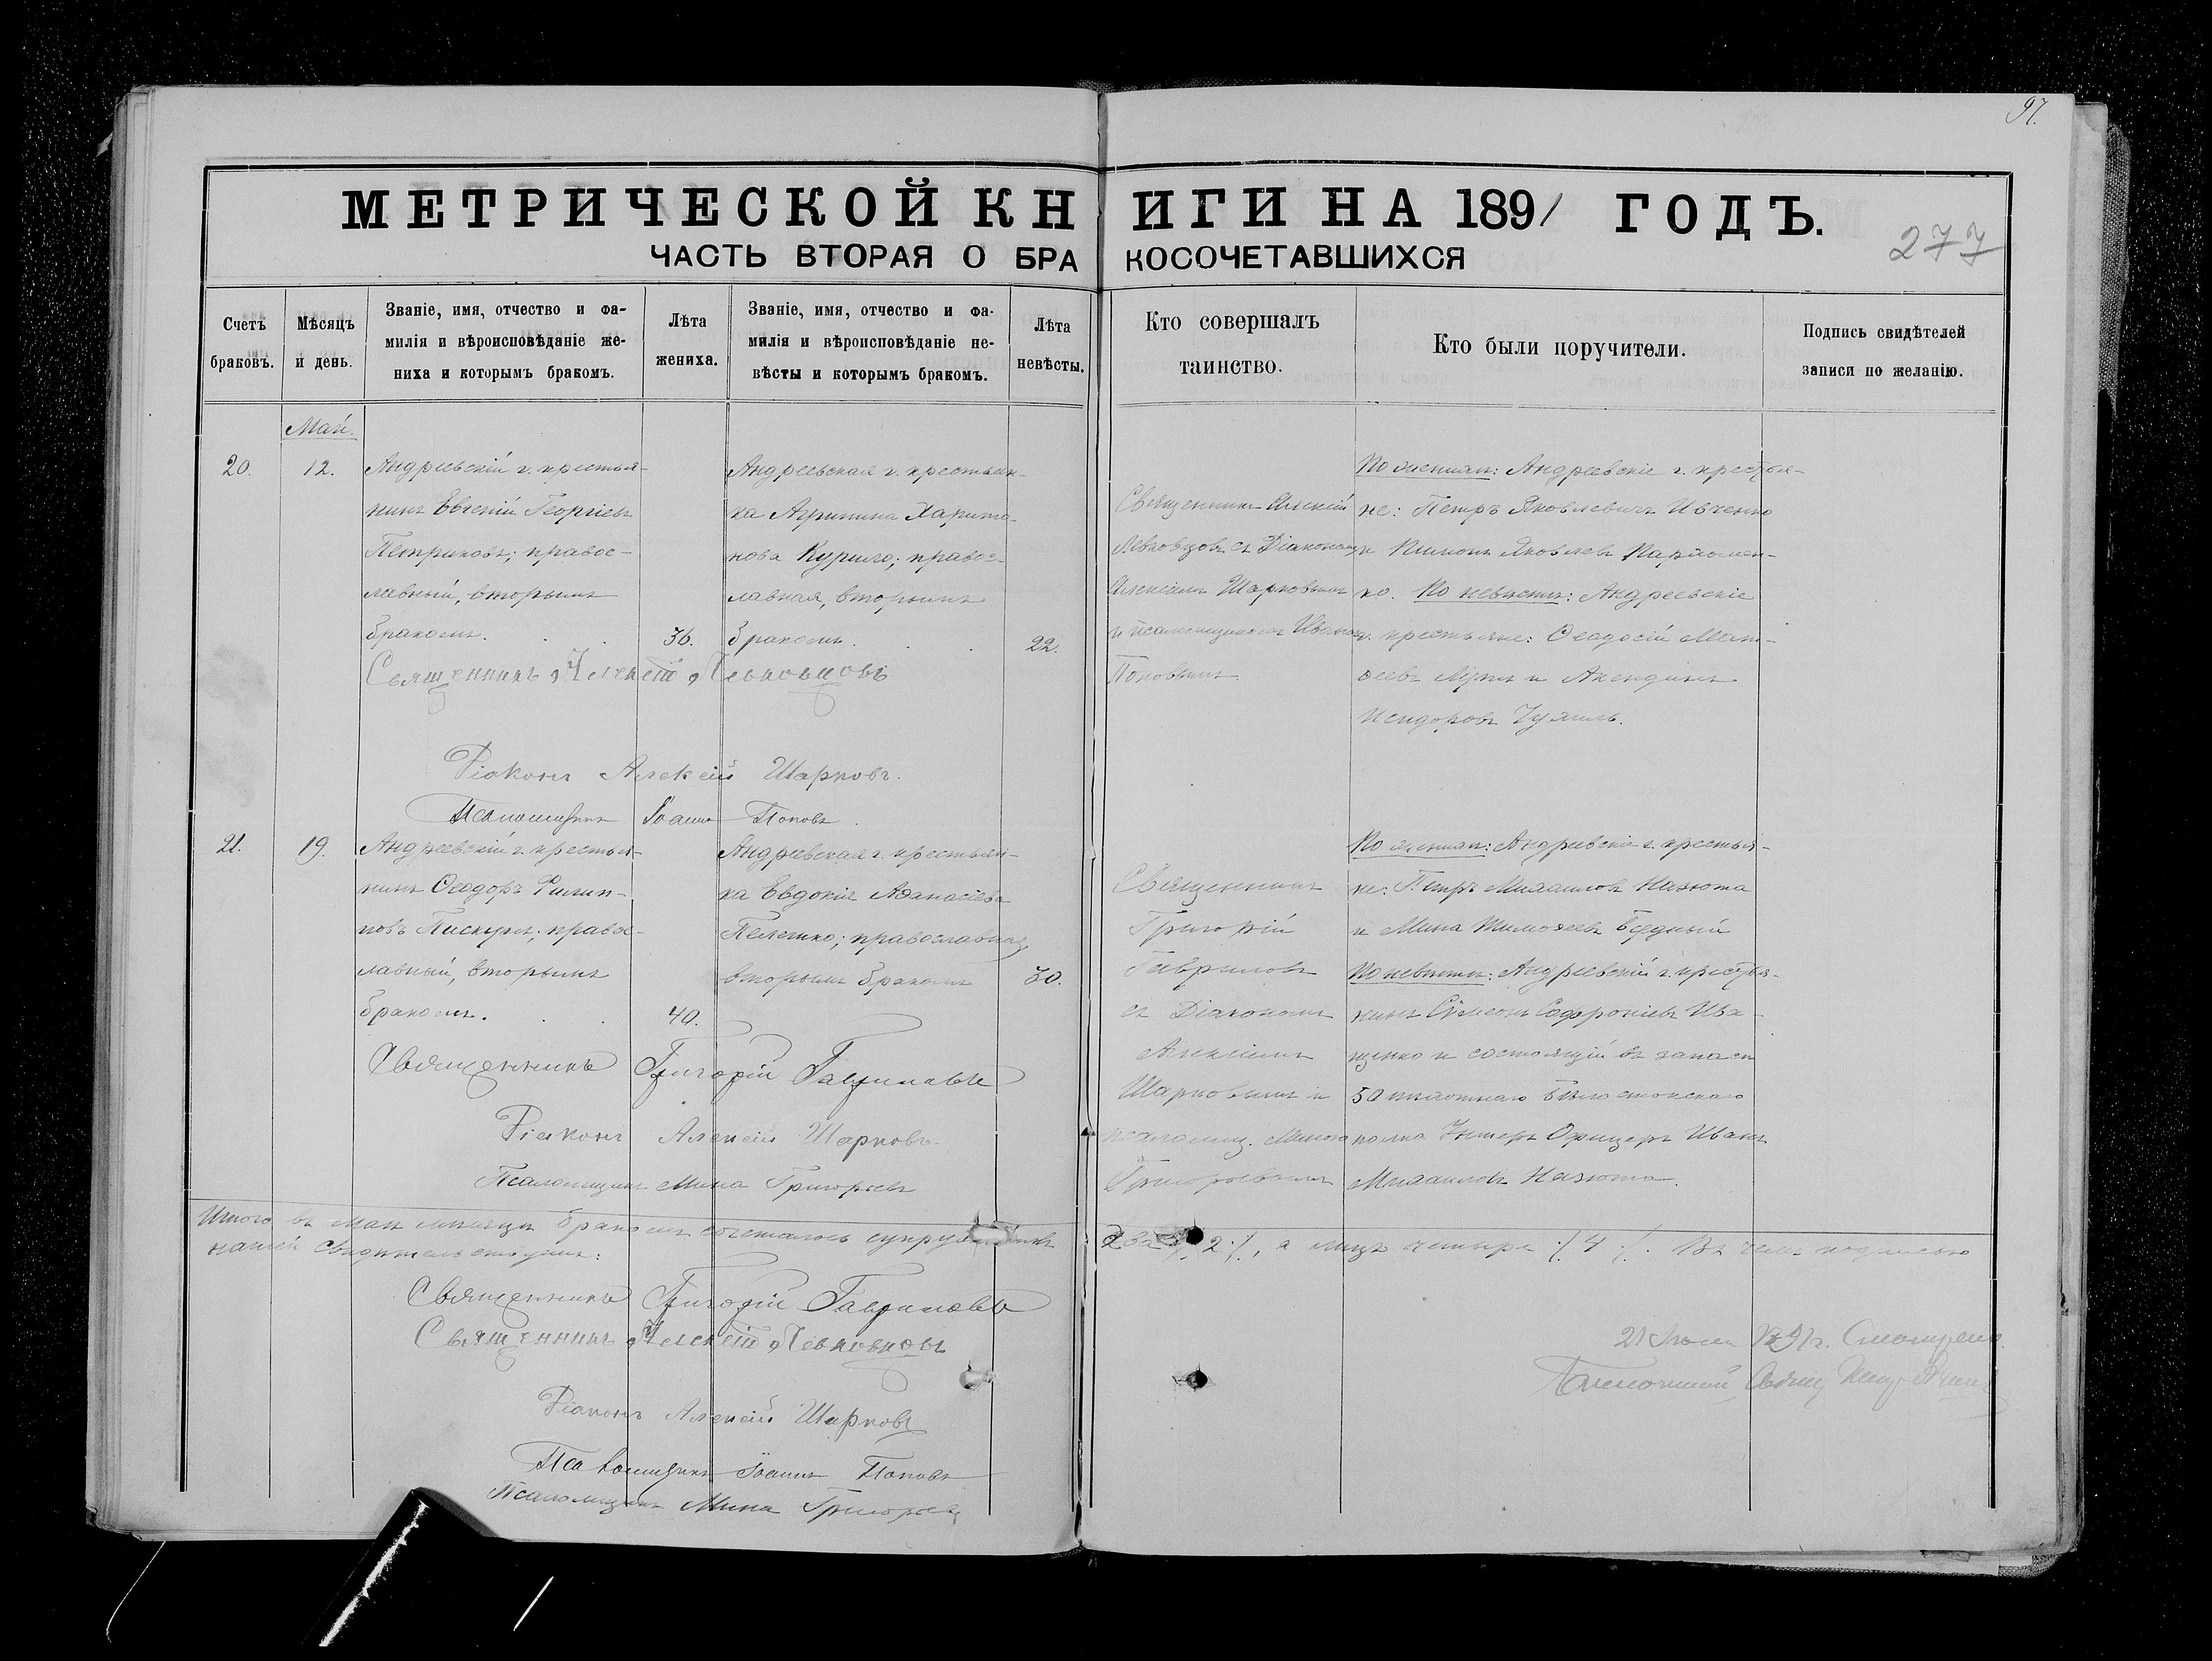 97.
МЕТРИЧЕСКОЙ КНИГИ НА 1891 ГОДЪ.
277
ЧАСТЬ ВТОРАЯ О БРАКОСОЧЕТАВШИХСЯ
Счетъ браковъ.
Мѣсяцъ и день.
Званіе, имя, отчество и фа-
милія и вѣроисповѣданіе же-
ниха и которымъ бракомъ.
Лѣта жениха.
Званіе, имя, отчество и фа-
милія и вѣроисповѣданіе не-
вѣсты и которымъ бракомъ.
Лѣта невѣсты.
Кто совершалъ
таинство.
Кто были поручители.
Подпись свидѣтелей
записи по желанію.
Май.
20.
12.
Андреевскій г. крестья-
нинъ Евгеній Георгіевъ
Петриковъ; правос-
лавный, вторымъ
бракомъ.
36.
Андреевская г. крестьян-
ка Агрипина Харито-
нова Курило; правос-
лавная, вторымъ
бракомъ.
22.
Священникъ Алексій
Левковцовъ съ Діакономъ
Алексіемъ Шарковымъ
и псаломщикомъ
Поповымъ
По женихѣ: Андреевскіе г. крестья-
не: Петръ Яковлевичъ Ивченко
и Яковлевъ
ко. По невѣстѣ: Андреевскіе
г. крестьяне: Ѳеодосій Мат-
ѳеевъ и
Исидоровъ
Священникъ Алексій Левковцовъ
Діаконъ Алексій Шарковъ.
Псаломщикъ Іоаннъ Поповъ.
21.
19.
Андреевскій г. крестья-
нинъ Ѳеодоръ Филип-
повъ Пискунъ; правос-
лавный, вторымъ
бракомъ.
40.
Андреевская г. крестьян-
ка Евдокія Аѳанасіева
православная,
вторымъ бракомъ
30.
Священникъ
Григорій
Гавриловъ
съ Діакономъ
Алексіемъ
Шарковымъ и
псаломщ. Миною
Григорьевымъ
По женихѣ: Андреевскіе г. крестья-
не: Петръ Михаиловъ Назюта
и Мина Тимоѳеевъ Бѣдный
По невѣстѣ: Андреевскій г. крестья-
нинъ Сѵмеонъ Софроніевъ Ива-
щенко и состоящій въ запасѣ
50 пѣхотнаго Бѣлостокскаго
полка Унтеръ Офицеръ Иванъ
Михаиловъ Назюта.
Священникъ Григорій Гавриловъ
Діаконъ Алексій Шарковъ.
Псаломщикъ Мина Григорьевъ
Итого въ маѣ мѣсяцѣ бракомъ сочеталось два ./. 2 ./., а лицъ четыре ./. 4 ./. Въ чемъ подписью
нашей свидѣтельствуемъ:
Священникъ Григорій Гавриловъ
Священникъ Алексій Левковцовъ
Діаконъ Алексій Шарковъ
Псаломщикъ Іоаннъ Поповъ
Псаломщикъ Мина Григорьевъ